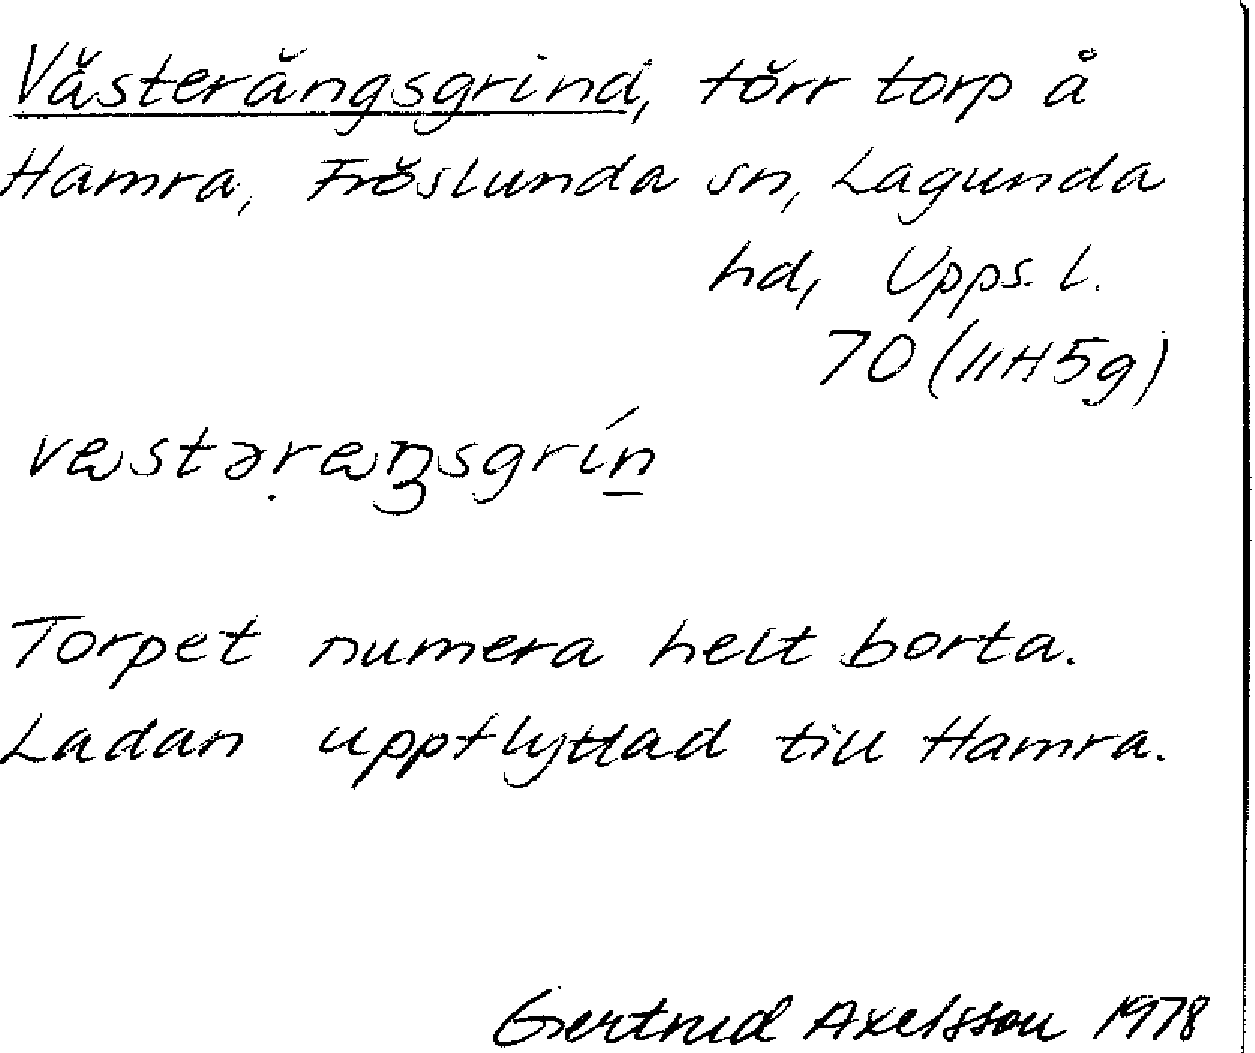 Västerängsgrind, förr torp å
Hamra, Fröslunda sn, Lagunda
hd, Upps. l.
70 (11H5g)
væstəṛæŋsgrín̲
Torpet numera helt borta.
Ladan uppflyttad till Hamra.
Gertrud Axelsson 1978